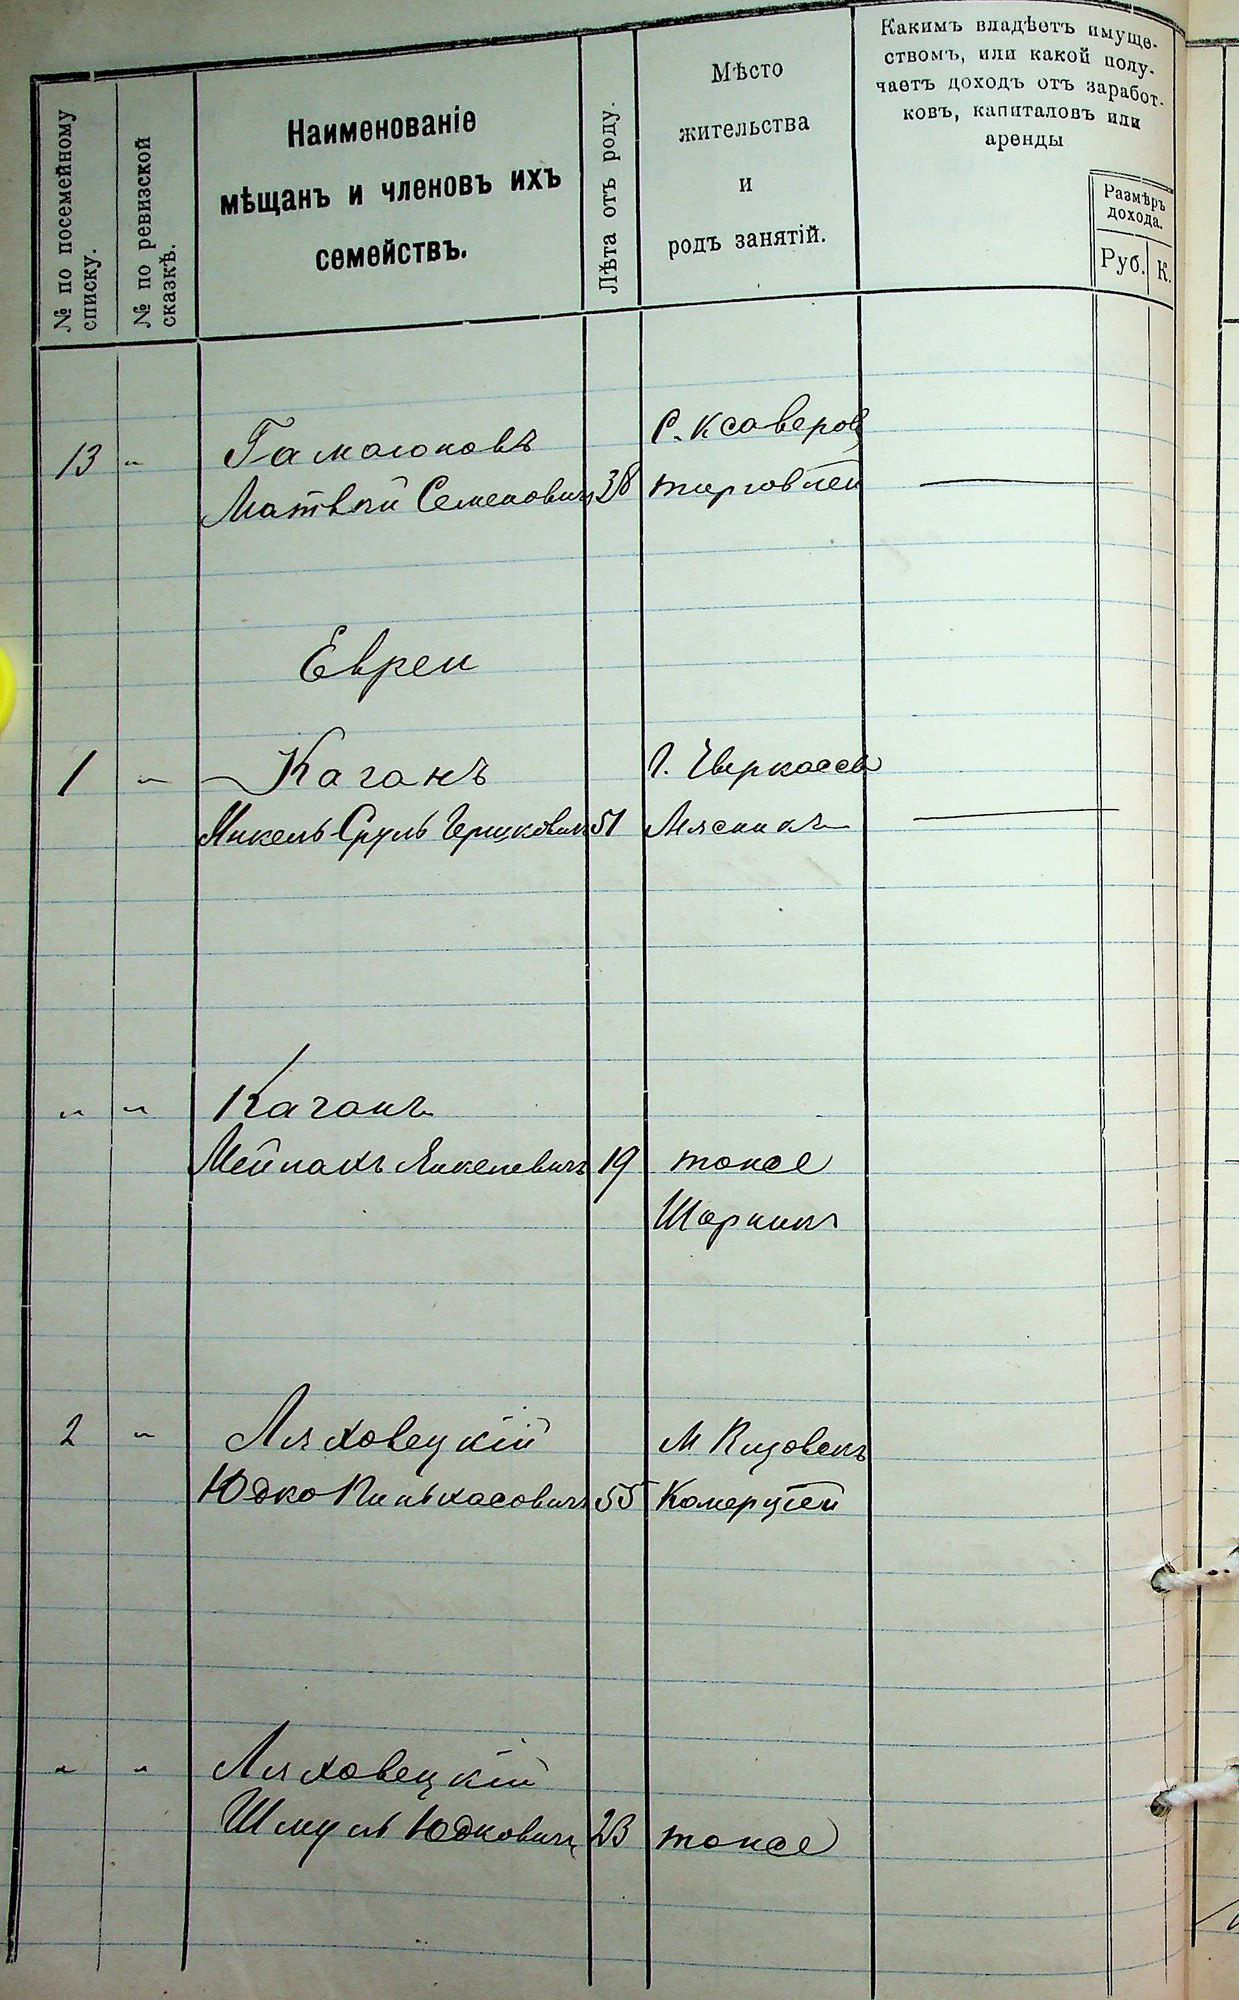 № по посемейному
списку.
№ по ревизской
сказкѣ.
Наименованіе
мѣщанъ и членовъ ихъ
семействъ.
Лѣта отъ роду.
Мѣсто
жительства
и
родъ занятій.
Какимъ владѣетъ имуще-
ствомъ, или какой полу-
чаетъ доходъ отъ заработ-
ковъ, капиталовъ или
аренды
Размѣръ
дохода.
Руб. К.
С. Ксаверов
13 "
Матвѣй Семенович 38 торговлей
Евреи
1 " Каганъ Г. Черкассы
Сруль Гершкович 51 Мясникъ
" " Каганъ
Янкелевичъ 19 тоже
2 " Ляховецкій М
Юдко Пинькасовичъ 55 Комерціей
" " Ляховецкій
Шмуль Юдкович 23 тоже